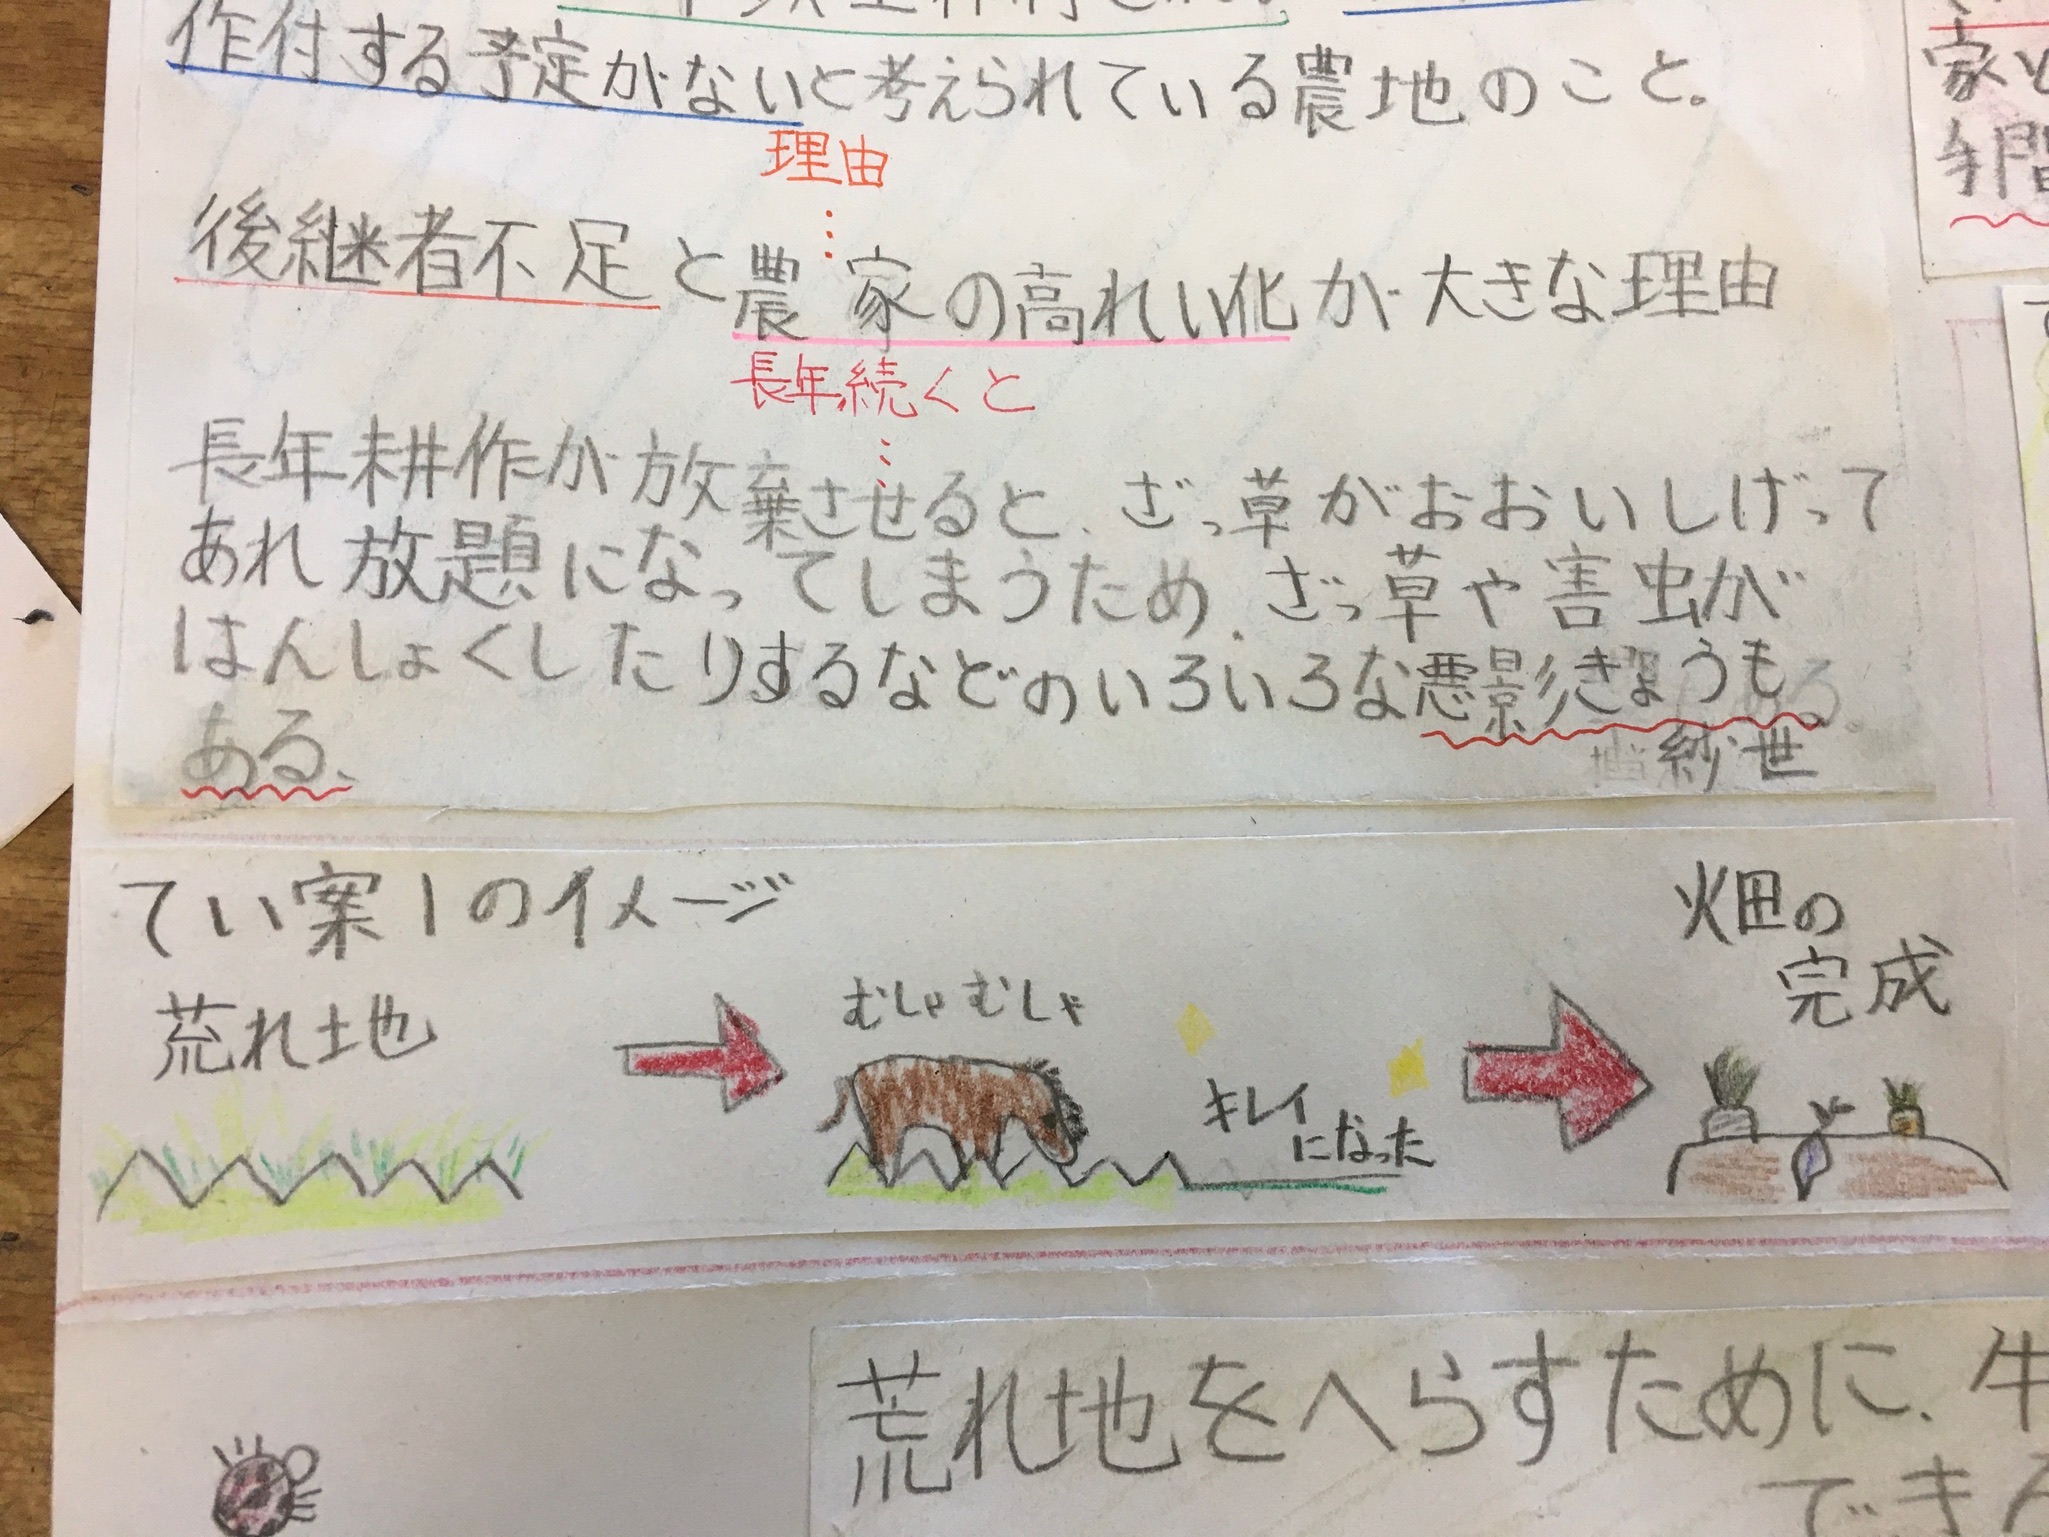 作付する予定がないと考えられている農地のこと。
理由
後継者不足と農家の高れい化が大きな理由
長年続くと
長年耕作が放棄させると、ざっ草がおおいしげって
あれ放題になってしまうため、ざっ草や害虫が
はんしょくしたりするなどのいろいろな悪影きょうも
ある、
紗世
家
手間
てい案1のイメージ
荒れ地
むしゃむしゃ
キレイ
になった
畑の
完成
荒れ地をへらすために、牛
できる